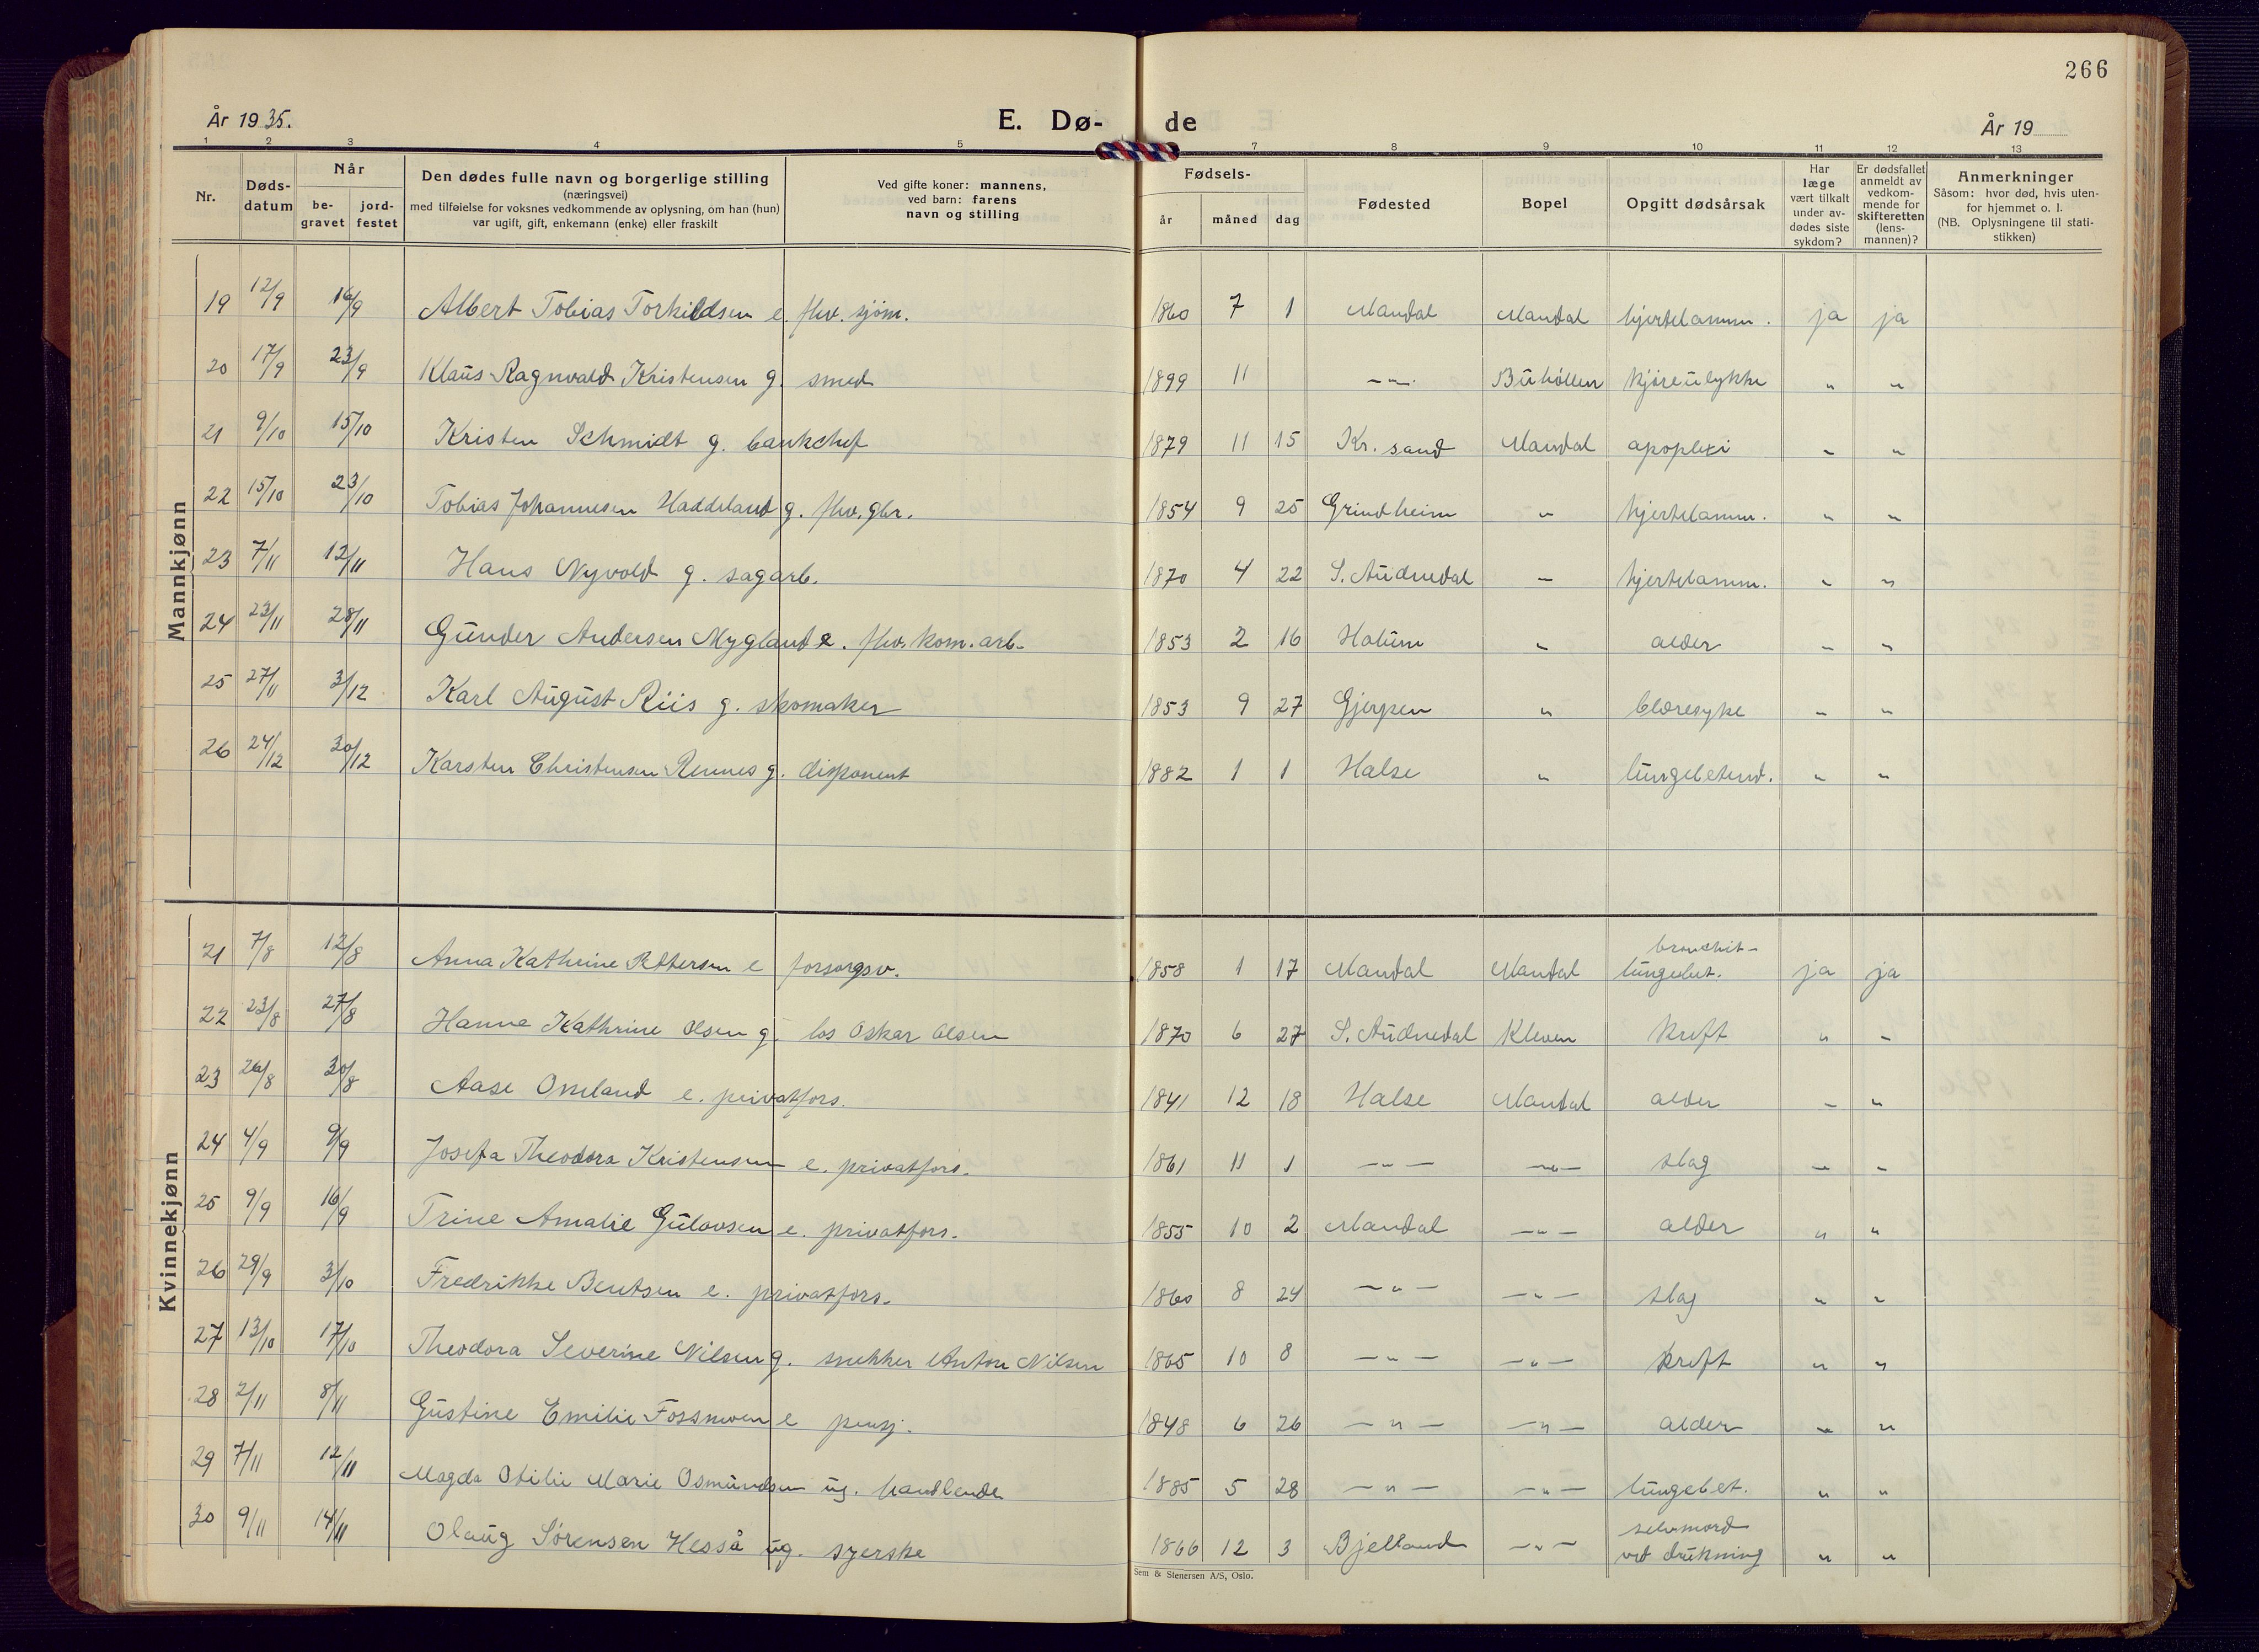 266
År 1935.
E. Dø-
de
År 19
1 2 3 4 5 7 8 9 10 11 12 13
Nr.
Døds-
datum
Når
be-
gravet
jord-
festet
Den dødes fulle navn og borgerlige stilling
(næringsvei)
med tilføielse for voksnes vedkommende av oplysning, om han (hun)
var ugift, gift, enkemann (enke) eller fraskilt
Ved gifte koner: mannens,
ved barn: farens
navn og stilling
Fødsels-
år måned dag
Fødested
Bopel
Opgitt dødsårsak
Har
læge
vært tilkalt
under av-
dødes siste
sykdom?
Er dødsfallet
anmeldt av
vedkom-
mende for
skifteretten
(lens-
mannen)?
Anmerkninger
Såsom: hvor død, hvis uten-
for hjemmet o. l.
(NB. Oplysningene til stati-
stikken)
Mannkjønn
19 12/9 16/9 Albert Tobias Torkildsen e. fhv. sjøm. 1860 7 1 Mandal Mandal hjertelamm. ja ja
20 17/9 23/9 Klaus Ragnvald Kristensen g. smed 1899 11 -"- Buhøllen kjøreulykke " "
21 9/10 15/10 Kristen Schmidt g. bankchef 1879 11 15 Kr. sand Mandal apoplexi " "
22 15/10 23/10 Tobias Johannesen Haddeland g. fhv. gbr. 1854 9 25 Grindheim " hjertelamm. " "
23 7/11 12/11 Hans Nyvold g. sagarb. 1870 4 22 S. Audnedal " hjertelamm. " "
24 23/11 28/11 Gunder Andersen Mygland e. fhv. kom. arb. 1853 2 16 Holum " alder " "
25 27/11 3/12 Karl August Riis g. skomaker 1853 9 27 Gjerpen " blæresyke " "
26 24/12 30/12 Karsten Christensen Rennes g. disponent 1882 1 1 Halse " lungebetend. " "
Kvinnekjønn
21 7/8 12/8 Anna Kathrine Pettersen e forsorgsv. 1858 1 17 Mandal Mandal bronchit-
lungebet. ja ja
22 23/8 27/8 Hanne Kathrine Olsen g. los Oskar Olsen 1870 6 27 S. Audnedal Kleven kreft " "
23 26/8 30/8 Aase Omland e. privatfors. 1841 12 18 Halse Mandal alder " "
24 4/9 9/9 Josefa Theodora Kristensen e. privatfors. 1861 11 1 -"- -"- slag " "
25 9/9 16/9 Trine Amalie Gulovsen e. privatfors. 1855 10 2 Mandal -"- alder " "
26 29/9 3/10 Fredrikke Bentsen e. privatfors. 1860 8 24 -"- -"- slag " "
27 13/10 17/10 Theodora Severine Nilsen g. snekker Anton Nilsen 1865 10 8 -"- -"- kreft " "
28 2/11 8/11 Gustine Emilie Fossmoen e pensj. 1848 6 26 -"- -"- alder " "
29 7/11 12/11 Magda Otilie Marie Osmundsen ug. handlende 1885 5 28 -"- -"- lungebet. " "
30 9/11 14/11 Olaug Sørensen Hesså ug. syerske 1866 12 3 Bjelland -"- selvmord
ved drukning " "
Sem & Stenersen A/S, Oslo.